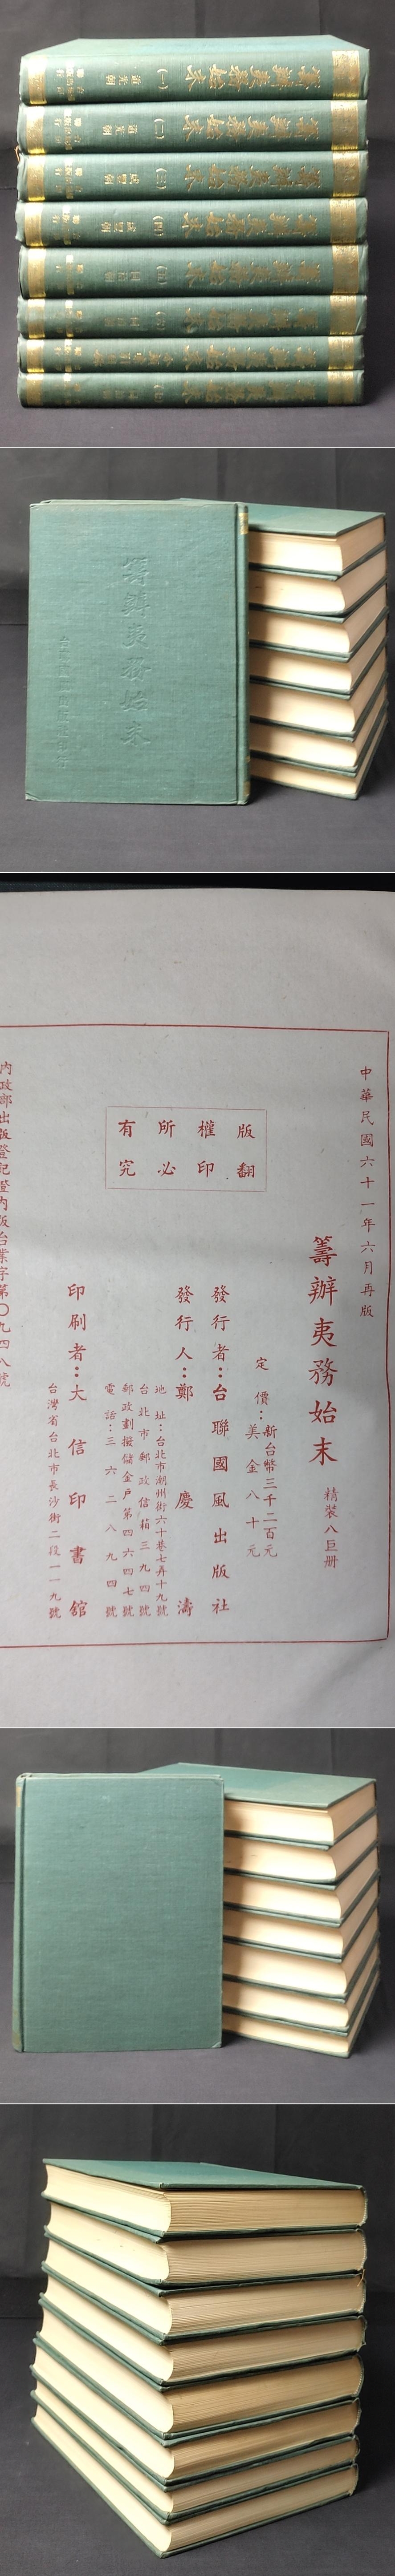 籌辦夷務始末
(一)
道光朝
籌辦夷務始末
(二)
道光朝
籌辦夷務始末
(三)
咸豐朝
籌辦夷務始末
(四)
咸豐朝
籌辦夷務始末
(五)
同治朝
籌辦夷務始末
籌辦夷務始末
籌辦夷務始末
籌辦夷務始末
中華民國六十一年六月再版
籌辦夷務始末
精裝八巨冊
定價:新台幣三千二百元
美金八十元
版權所有
翻印必究
發行者:台聯國風出版社
發行人:鄭慶濤
地址:台北市潮州街六十巷七弄十九號
台北市郵政信箱三九四號
郵政劃撥儲金戶第四六四七號
電話:三六二八九四號
印刷者:大信印書館
台灣省台北市長沙街二段一一九號
內政部出版登記證內版台業字第〇九四八號